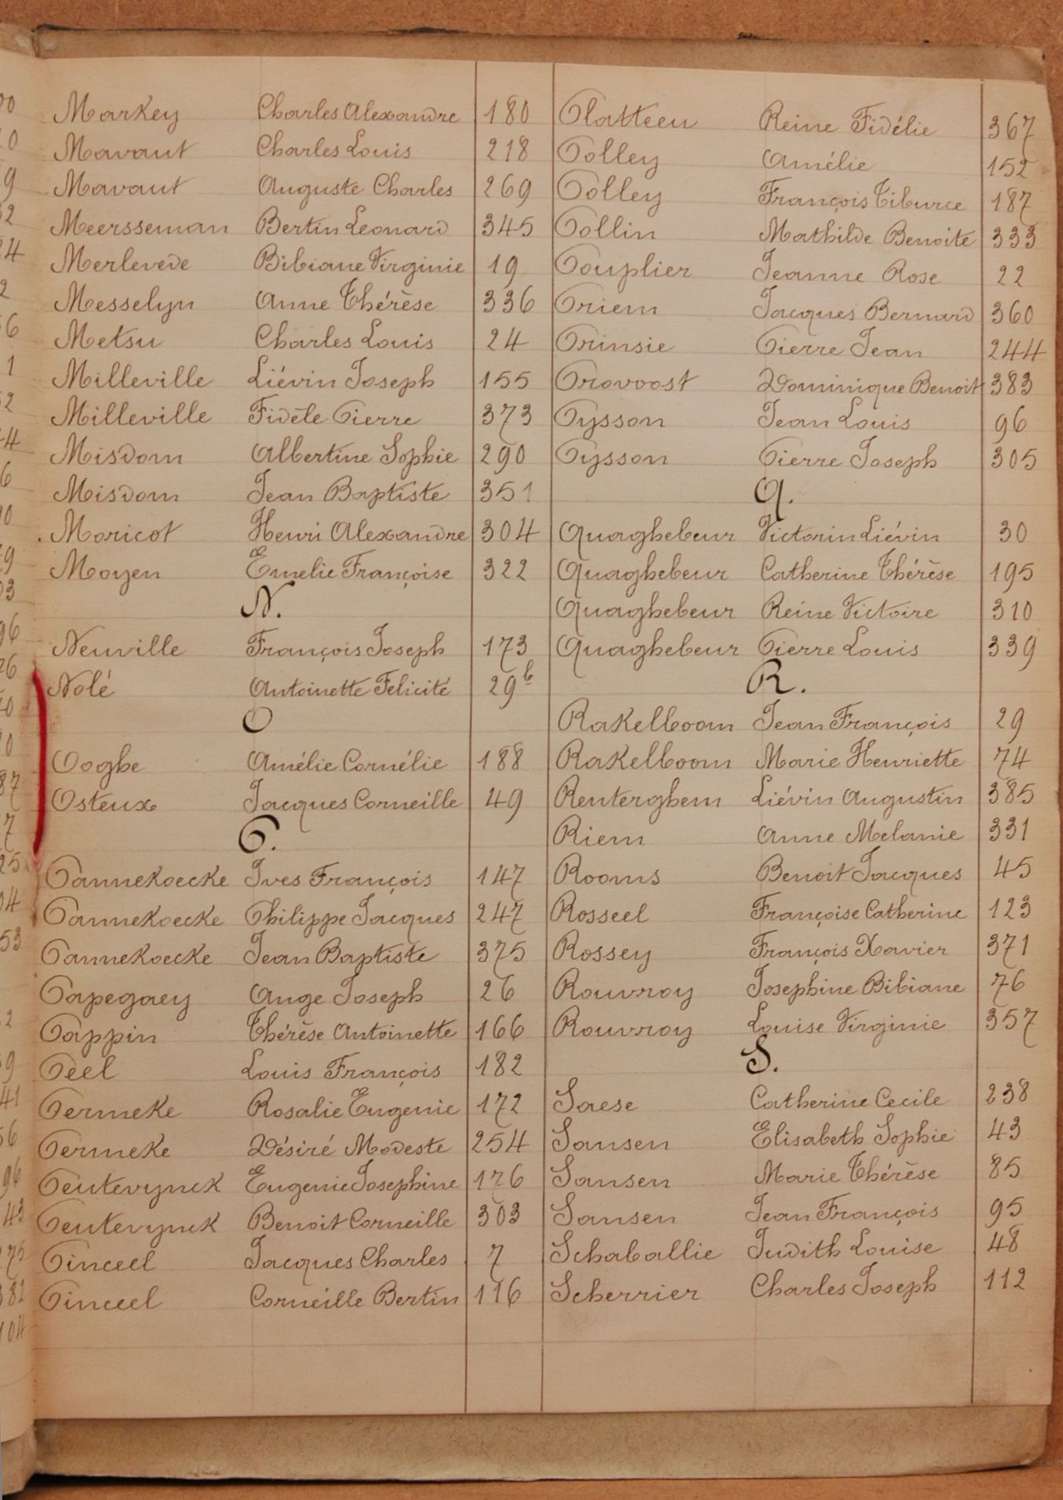 Markey Charles Alexandre 180
Mavaut Charles Louis 218
Mavaut Auguste Charles 269
Meersseman Bertin Leonard 345
Merlevede Bibiane Virginie 19
Messelyn Anne Thérèse 336
Metsu Charles Louis 24
Milleville Liévin Joseph 155
Milleville Fidèle Pierre 373
Misdom Albertine Sophie 290
Misdom Jean Baptiste 351
Moricot Henri Alexandre 304
Moyen Emelie Françoise 322
N.
Neuville François Joseph 173
Nolé Antoinette Felicité 29b
O
Ooghe Amélie Cornélie 188
Osteux Jacques Corneille 49
P.
Pannekoecke Ives François 147
Pannekoecke Philippe Jacques 247
Pannekoecke Jean Baptiste 375
Papegaey Ange Joseph 26
Pappin Thérèse Antoinette 166
Péel Louis François 182
Permeke Rosalie Eugenie 172
Permeke Désiré Modeste 254
Peutevynck Eugenie Josephine 176
Peutevynck Benoit Corneille 303
Pinceel Jacques Charles 7
Pinceel Corneille Bertin 116
Platteeu Reine Fidélie 367
Polley Amélie 152
Polley François Tiburce 187
Pollin Mathilde Benoite 333
Pouplier Jeanne Rose 22
Priem Jacques Bernard 360
Prinsie Pierre Jean 244
Provoost Dominique Benoit 383
Pysson Jean Louis 96
Pysson Pierre Joseph 305
Q.
Quaghebeur Victorin Liévin 30
Quaghebeur Catherine Thérèse 195
Quaghebeur Reine Victoire 310
Quaghebeur Pierre Louis 339
R.
Rakelboom Jean François 29
Rakelboom Marie Henriette 74
Renterghem Liévin Augustin 385
Riem Anne Melanie 331
Rooms Benoit Jacques 45
Rosseel Françoise Catherine 123
Rossey François Xavier 371
Rouvroy Josephine Bibiane 76
Rouvroy Louise Virginie 357
S.
Saese Catherine Cecile 238
Sansen Elisabeth Sophie 43
Sansen Marie Thérèse 85
Sansen Jean François 95
Schaballie Judith Louise 48
Scherrier Charles Joseph 112